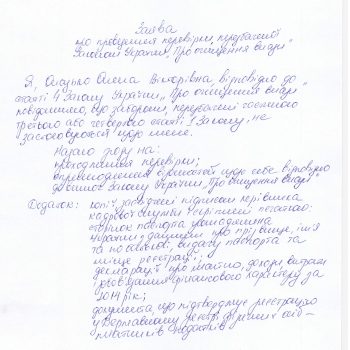 Заява
про проведення перевірки, передбаченої
Законом України „Про очищення влади"
Я, Олена Вікторівна відповідно до
статті 4 Закону України „Про очищення влади"
повідомляю, що заборони, передбачені частиною
третьою або четвертою статті 1 Закону, не
застосовуються щодо мене.
Надаю згоду на:
проходження перевірки;
оприлюднення відомостей щодо себе відповідно
до вимог Закону України „Про очищення влади"
Додаток: копії, засвідчені підписом керівника
кадрової служби і скріплені печаткою:
сторінок паспорта громадянина
України з даними про прізвище, ім'я
та по батькові, видачу паспорта та
місце реєстрації;
декларації про майно, доходи, витрати
і зобов'язання фінансового характеру за
2014 рік;
документа, що підтверджує реєстрацію
у Державному реєстрі фізичних осіб-
платників податків